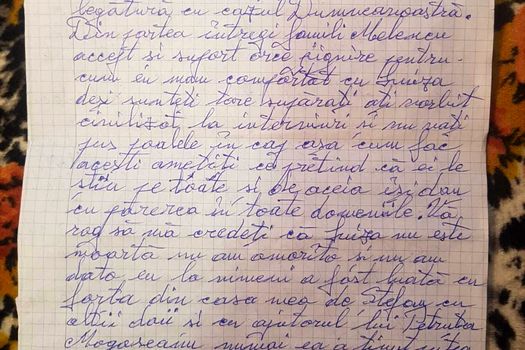 legătură cu cazul Dumneavoastră.
Din partea întregi familii Melencu
accept și suport orce jignire pentru-
cum eu mam comportat cu Luiza
deși sunteți tare supărați ați vorbit
civilizat la interviuri și nu vați
pus poalele în cap așa cum fac
acești ametiți ce pretind că ei le
știu pe toate și de aceia își dau
cu părerea în toate domenile. Vă
rog să mă credeți că Luiza nu este
moartă nu am omorîto și nu am
dato eu la nimeni a fost luată cu
forța din casa mea de Ștefan cu
alții doii și cu ajutorul lui Petruța
Mogoșeanu numai ea a ținut